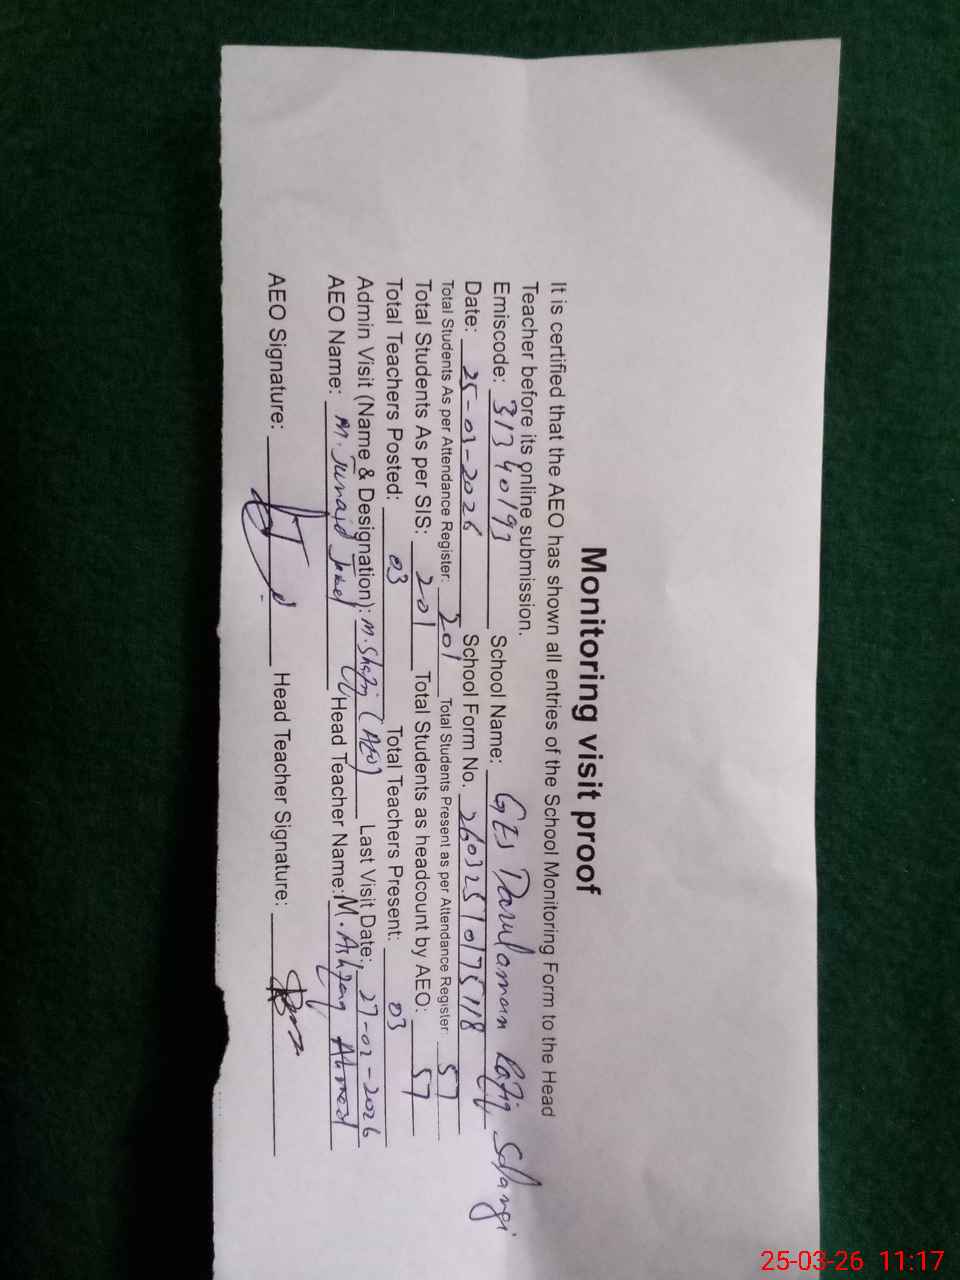 Monitoring visit proof
It is certified that the AEO has shown all entries of the School Monitoring Form to the Head
Teacher before its online submission.
Emiscode: 31340193 School Name: GES Darulaman Rafiq Solangi
Date: 25-03-2026 School Form No. 26032510175118
Total Students As per Attendance Register: 201 Total Students Present as per Attendance Register: 57
Total Students As per SIS: 201 Total Students as headcount by AEO: 57
Total Teachers Posted: 03 Total Teachers Present: 03
Admin Visit (Name & Designation): M. Shafiq (AEO) Last Visit Date: 27-02-2026
AEO Name: M. Junaid Head Teacher Name: M. Ashfaq Ahmed
AEO Signature: Head Teacher Signature:
25-03-26 11:17